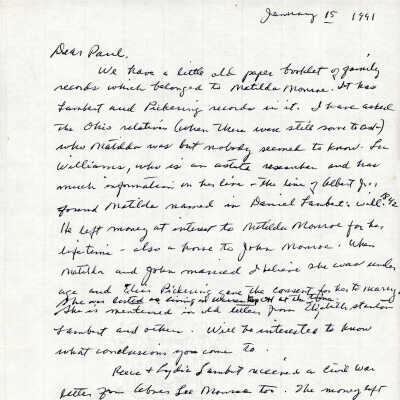 January 15 1991
Dear Paul,
We have a little old paper booklet of family
records which belonged to Matilda Monroe. It has
Lambert and Pickering records in it. I have asked
the Ohio relatives (when there were still some to ask)
who Matilda was but nobody seemed to know. Lee
Williams, who is an astute researcher and has
much information on her line - the line of Albert Jr.,
found Matilda named in Daniel Lambert's will.
He left money at interest to Matilda Monroe for her
lifetime - also a horse to John Monroe. When
Matilda and John married I believe she was under
age and Pickering gave the consent for her to marry.
She was listed as living in at the time.
She is mentioned in old letters from Elizabeth Stanton
Lambert and others. Will be interested to know
what conclusions you come to.
Reece & Lydia Lambert received a Civil War
letter from Lee Monroe too. The money left